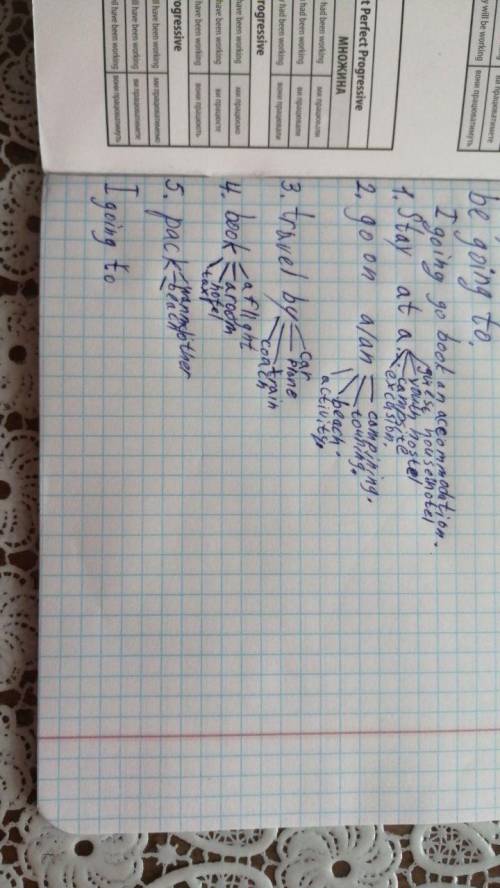 y will be working
ви працюватимете
вони працюватимуть
t Perfect Progressive
МНОЖИНА
had been working
ми працювали
had been working
ви працювали
y had been working
вони працювали
rogressive
have been working
ми працюємо
have been working
ви працюєте
have been working
вони працюють
gressive
ll have been working
ми працюватимемо
ll have been working
ви працюватимете
ill have been working
вони працюватимуть
be going to.
I going go book an accommodation.
1. Stay at a
guest house motel
youth hostel
campsite
excusion.
2. go on a/an
campining.
touning.
beach.
activity.
3. travel by
car
plane
train
coach
4. book
a flight
a room
hotel
taxi
5. pack
beach
I going to